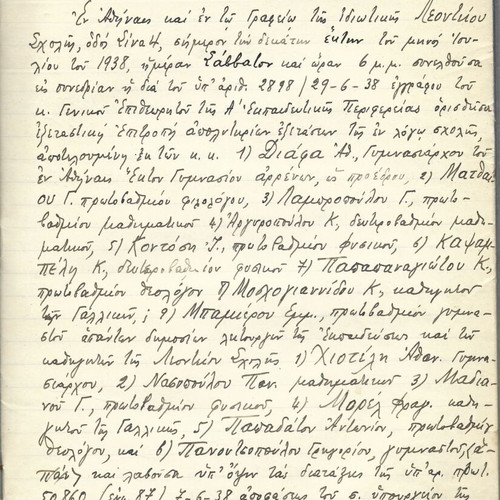 Ἐν Ἀθήναις καὶ ἐν τῷ Γραφείῳ τῆς Ἰδιωτικῆς Λεοντείου
Σχολῆς, ὁδὸς Σίνα 4, σήμερον τὴν δεκάτην ἕκτην τοῦ μηνὸς Ἰου-
λίου τοῦ 1938, ἡμέραν Σάββατον καὶ ὥραν 6 μ.μ. συνελθοῦσα
εἰς συνεδρίαν ἡ διὰ τοῦ ὑπ' ἀριθ. 2898/29-6-38 ἐγγράφου τοῦ
κ. Γενικοῦ Ἐπιθεωρητοῦ τῆς Α' Ἐκπαιδευτικῆς Περιφερείας ὁρισθεῖσα
ἐξεταστικὴ Ἐπιτροπὴ ἀπολυτηρίων ἐξετάσεων τῆς ἐν λόγῳ σχολῆς,
ἀποτελουμένη ἐκ τῶν κ.κ. 1) Διάφα Ἀθ., Γυμνασιάρχου τοῦ
ἐν Ἀθήναις Ἕκτου Γυμνασίου ἀρρένων, ὡς προέδρου, 2) Ματθαί-
ου Γ. πρωτοβαθμίου φιλολόγου, 3) Λαμπροπούλου Γ., πρωτο-
βαθμίου μαθηματικοῦ 4) Ἀργυροπούλου Κ, δευτεροβαθμίου μαθη-
ματικοῦ, 5) Κοντόση Γ., πρωτοβαθμίου φυσικοῦ, 6) Καψαμ-
πέλη Κ, δευτεροβαθμίου φυσικοῦ 7) Παπαπαναγιώτου Κ,
πρωτοβαθμίου θεολόγου 8) Μοσχογιαννίδου Κ, καθηγητοῦ
τῶν Γαλλικῶν, 9) Μπαμιέρου Ἐμμ., πρωτοβαθμίου γυμνα-
στοῦ ἁπάντων δημοσίων λειτουργῶν τῆς Ἐκπαιδεύσεως καὶ τῶν
καθηγητῶν τῆς Λεοντείου Σχολῆς 1) Χιοτέλη Ἀθαν. Γυμνα-
σιάρχου, 2) Νασοπούλου Παν. μαθηματικοῦ 3) Μαδια-
νοῦ Γ., πρωτοβαθμίου φυσικοῦ, 4) Μορέλ Φραγ. καθη-
γητοῦ τῆς Γαλλικῆς, 5) Παπαδάτου Ἀντωνίου, πρωτοβαθμίου
θεολόγου, καὶ 6) Πανουτσοπούλου Γρηγορίου, γυμναστοῦ
καὶ λαβοῦσα ὑπ' ὄψιν τὰς διατάξεις τῆς ὑπ' ἀρ. πρωτ.
50860 7-6-38 ἀποφάσεως τοῦ σ. ὑπουργείου τῆς